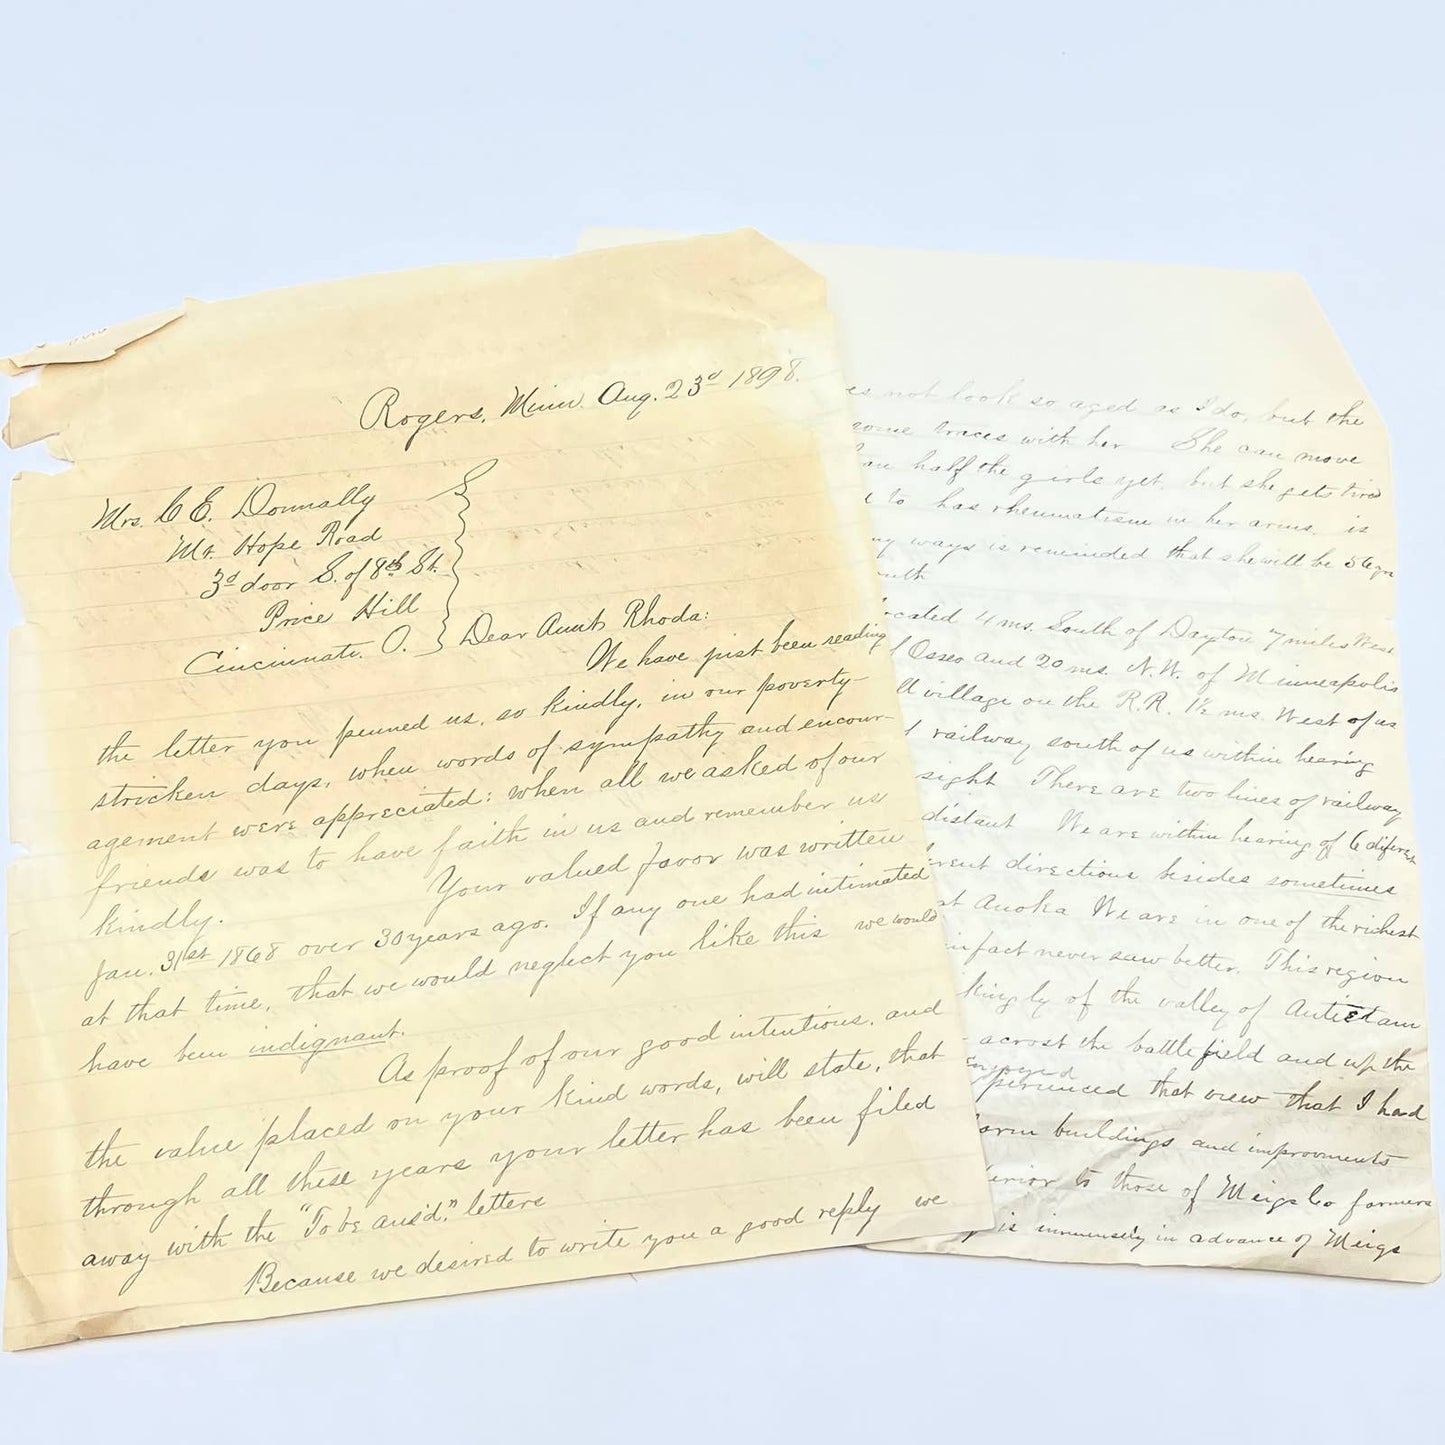 Rogers, Minn. Aug. 23d 1898.
Mrs. C E. Donnally
Mt. Hope Road
3d door S. of 8th St.
Price Hill
Cincinnati. O. Dear Aunt Rhoda:
We have just been reading
the letter you penned us, so kindly, in our poverty-
stricken days, when words of sympathy and encour-
agement were appreciated: when all we asked of our
friends was to have faith in us and remember us
kindly. Your valued favor was written
Jan. 31st 1868 over 30 years ago. If any one had intimated
at that time, that we would neglect you like this we would
have been indignant.
As proof of our good intentions, and
the value placed on your kind words, will state, that
through all these years your letter has been filed
away with the "To be ans'd." letters
Because we desired to write you a good reply we
not look so aged as I do, but the
some traces with her She can move
half the girls yet, but she gets tired
to has rheumatism in her arms. is
ways is reminded that she will be 56 yrs
4 ms. South of Dayton 7 miles West
Osseo and 20 ms. N.W. of Minneapolis
village on the R.R. 1½ ms. West of us
railway south of us within hearing
sight There are two lines of railway
distant We are within hearing of 6 diferent
directions besides sometimes
at Anoka We are in one of the richest
in fact never saw better. This region
of the valley of Antietam
across the battlefield and up the
enjoyed
that view that I had
farm buildings and improvments
to those of Meigs Co farmers
is immensely in advance of Meigs